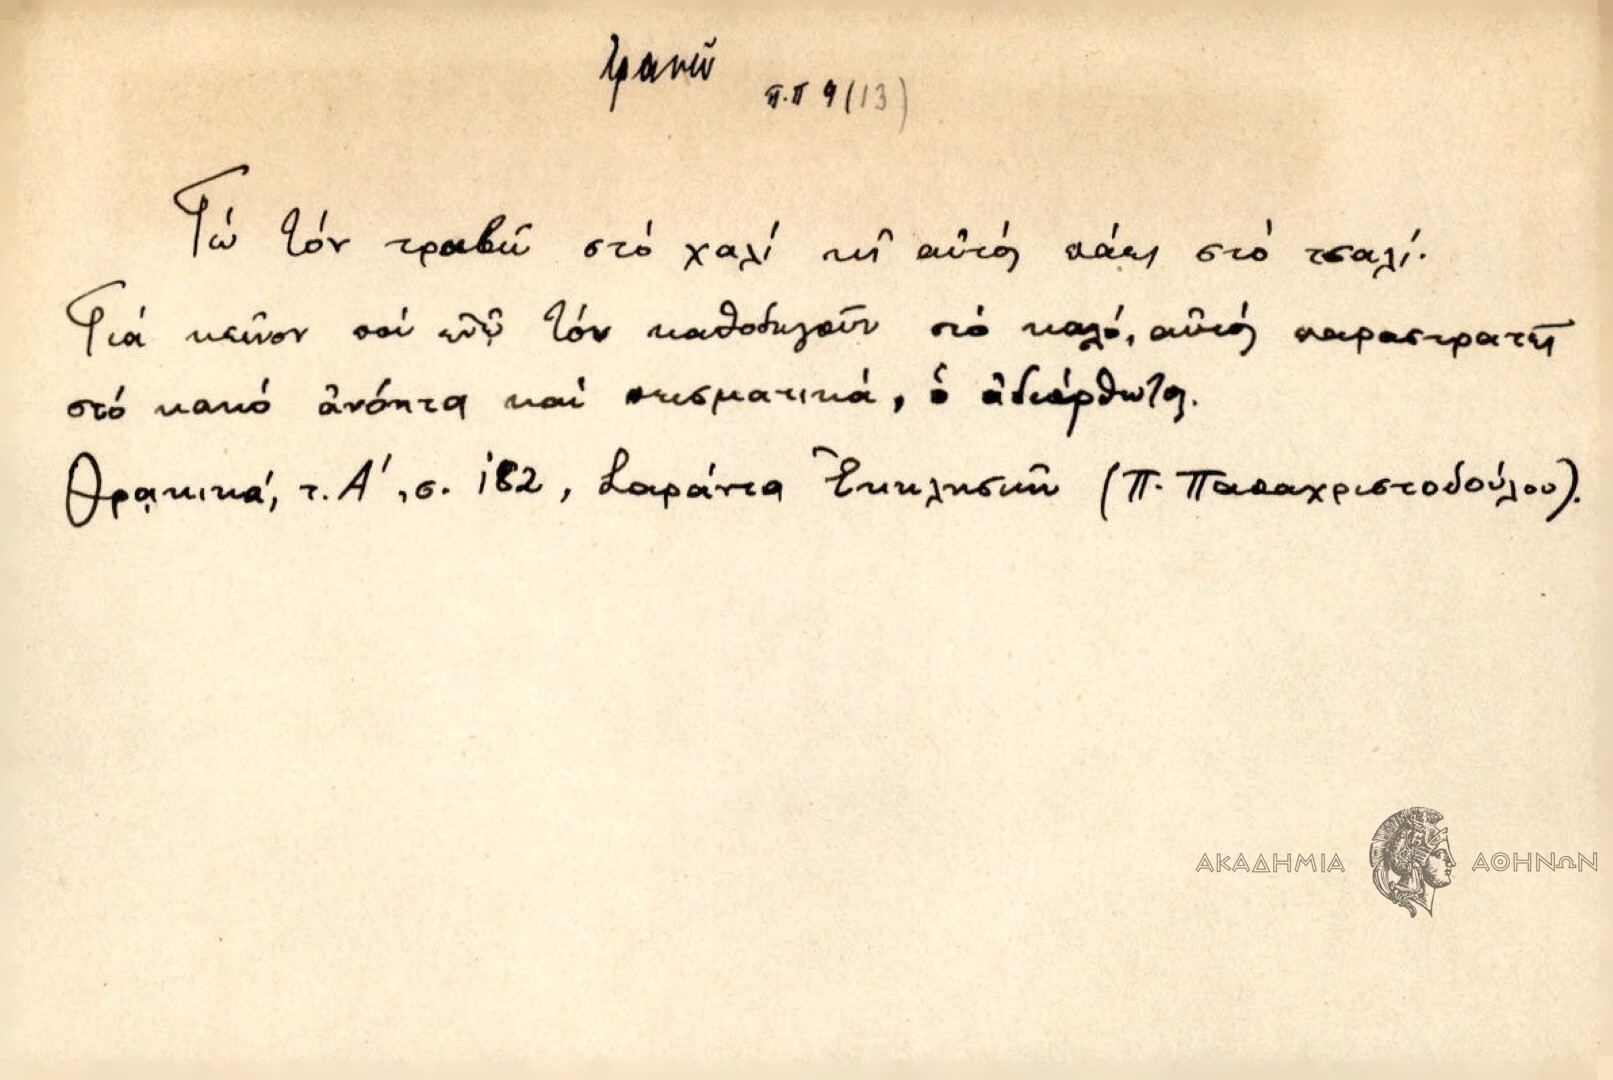 τραβῶ
π.π 9 (13)
Γώ τόν τραβῶ στό χαλί κι αὐτός πάει στό τσαλί.
Γιά κεῖνον πού ἐνῷ τόν καθοδηγοῦν στό καλό, αὐτός παραστρατεῖ
στό κακό ἀνόητα καί πεισματικά, ὁ ἀδιόρθωτος.
Θρᾳκικά, τ. Α΄, σ. 182, Σαράντα Ἐκκλησιῶν (Π. Παπαχριστοδούλου).
ΑΚΑΔΗΜΙΑ ΑΘΗΝΩΝ